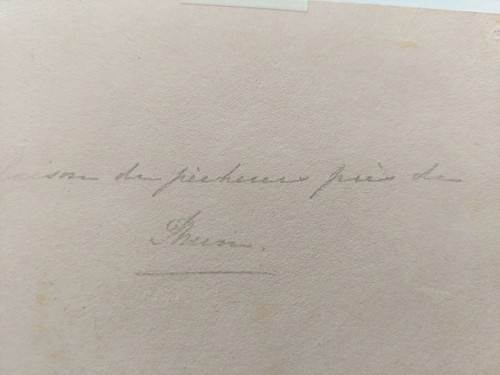 aison de pêcheurs près de
Thun.